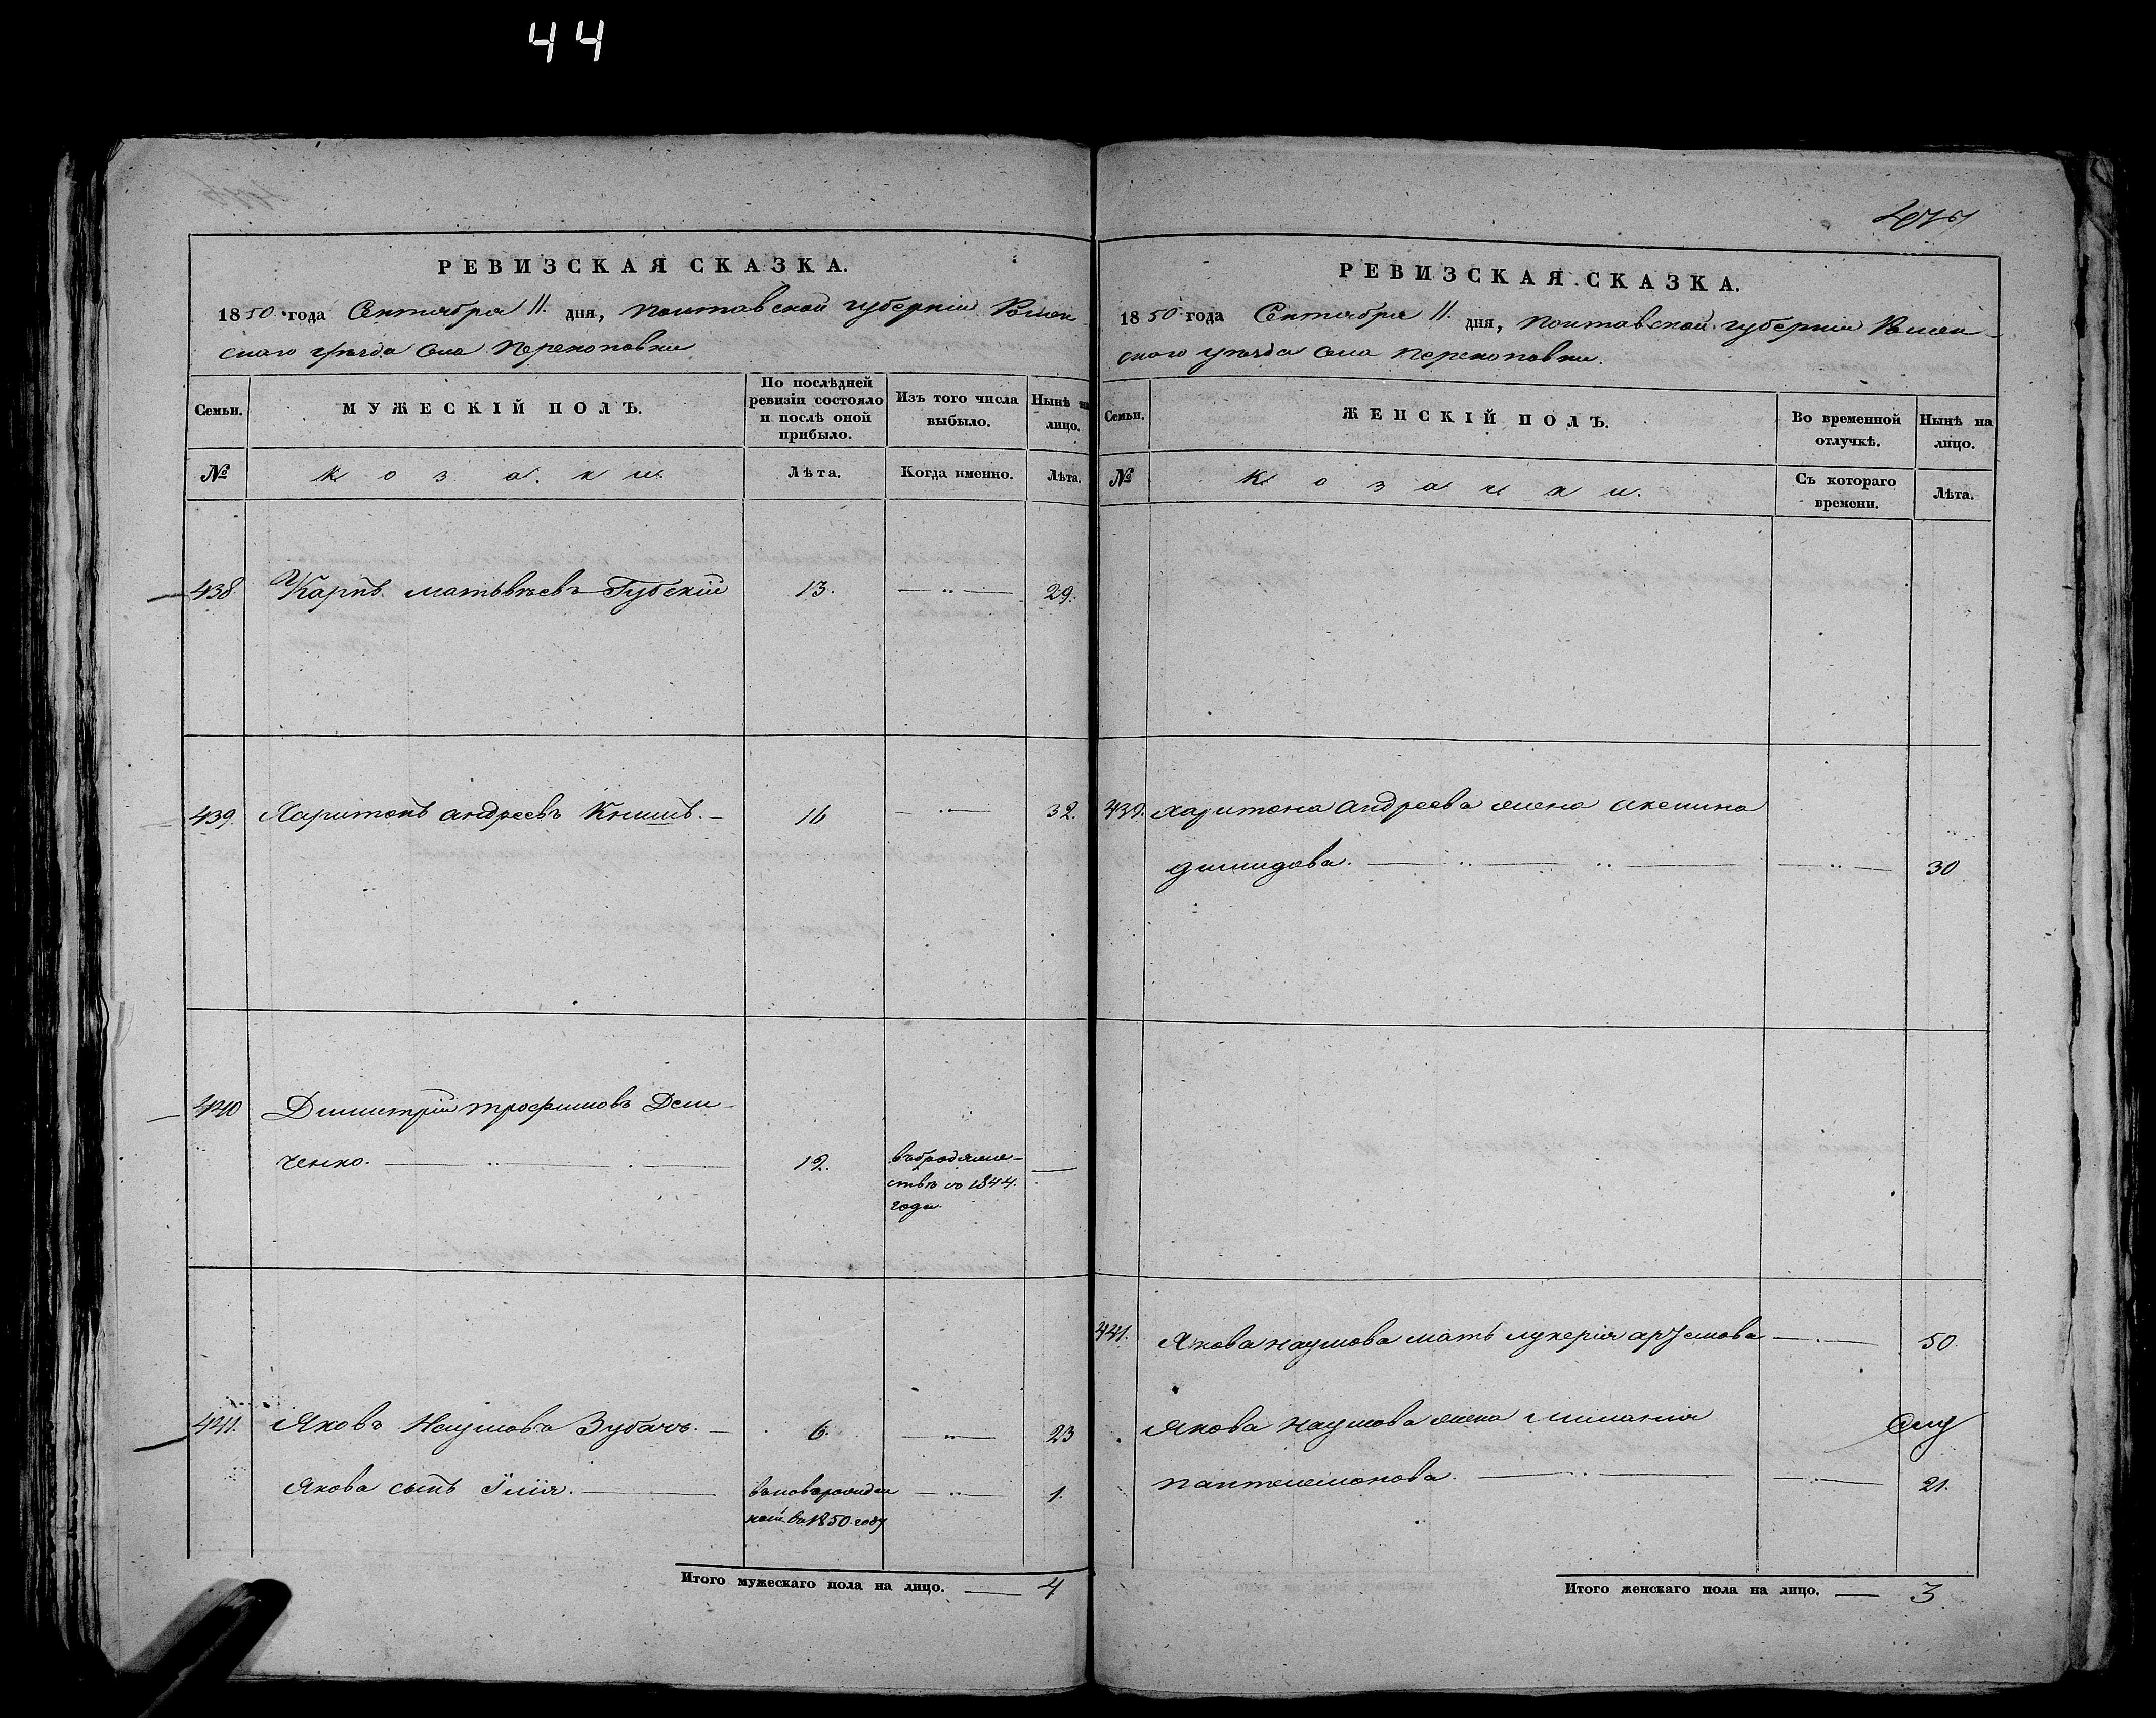 44
РЕВИЗСКАЯ СКАЗКА.
1850 года Сентября 11. дня, Полтавской губерніи Ромен
скаго уѣзда села Перекоповки
Семьи.
МУЖЕСКІЙ ПОЛЪ.
По послѣдней ревизіи состояло и послѣ оной прибыло.
Изъ того числа выбыло.
Нынѣ на лицо.
№
Козаки.
Лѣта.
Когда именно.
Лѣта.
438. Карпъ Матьвѣевъ Губскій 13. 29.
439. Харитонъ Андреевъ Книшъ. 16 32.
440 Димитрій Трофимовъ Дем-
ченко. 12. въ бродяже-
ствѣ съ 1844.
года.
441. Яковъ Наумовъ Зубачъ. 6. 23
Якова сынъ Илія. 1.
въ 1850. году
Итого мужескаго пола на лицо. 4
РЕВИЗСКАЯ СКАЗКА.
1850 года Сентября 11. дня, Полтавской губерніи Ромен-
скаго уѣзда села Перекоповки.
Семьи.
ЖЕНСКІЙ ПОЛЪ.
Во временной отлучкѣ.
Нынѣ на лицо.
№
Козачки.
Съ котораго времени.
Лѣта.
439. Харитона Андреева жена Акелина
Димидова. 30
441. Якова Наумова мать Лукерія Артемова 50.
Якова Наумова жена Миланія
Пантелемонова. 21.
Итого женскаго пола на лицо. 3.